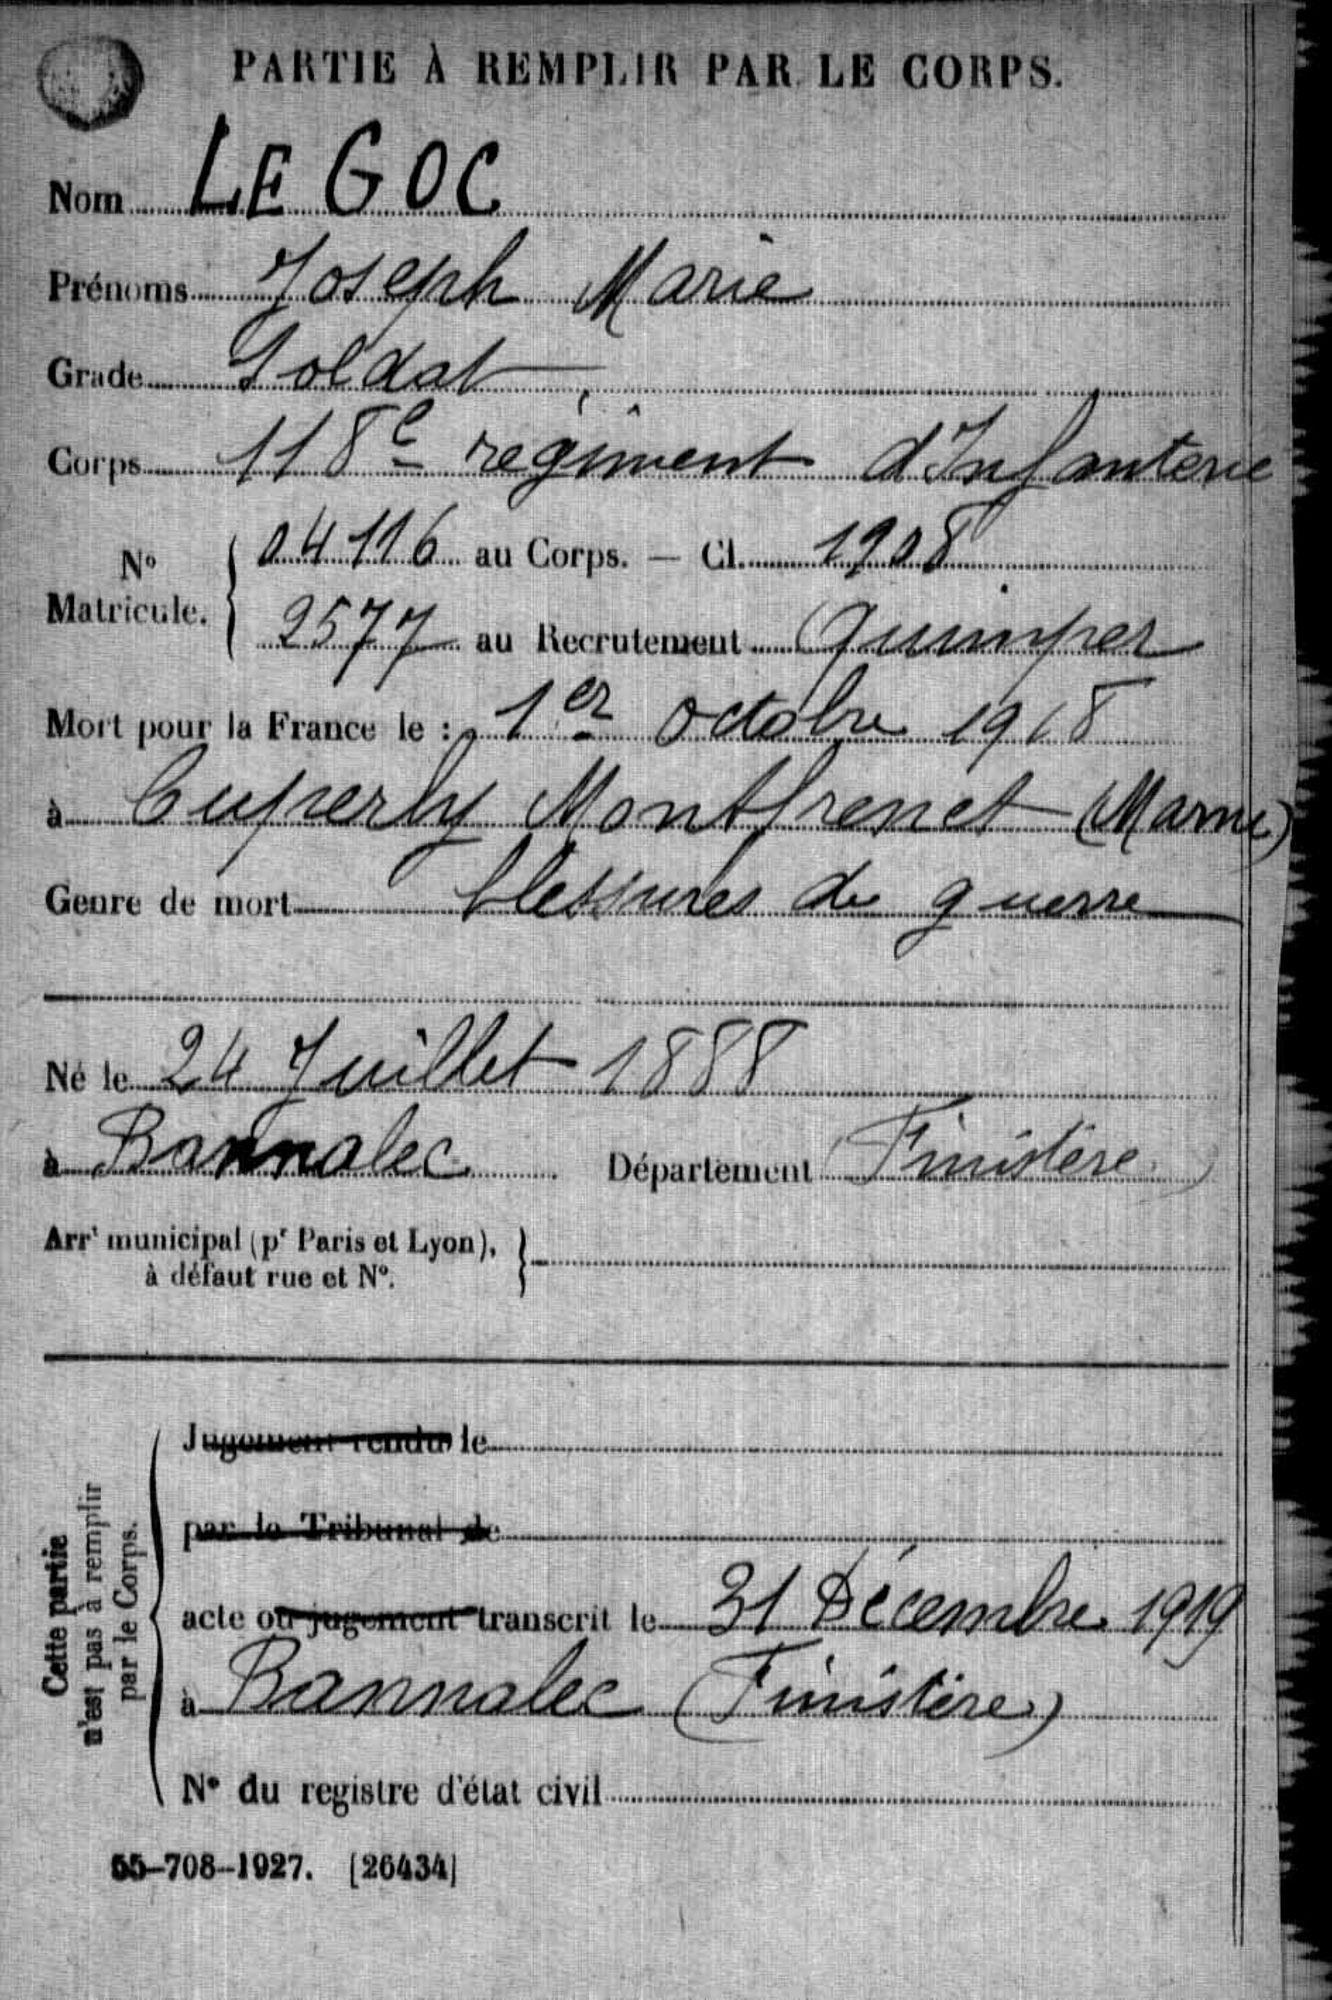 PARTIE À REMPLIR PAR LE CORPS.
Nom LE GOC
Prénoms Joseph Marie
Grade Soldat
Corps 118e régiment d'Infanterie
N° Matricule. 04116 au Corps. — Cl. 1908
2577 au Recrutement Quimper
Mort pour la France le : 1er octobre 1918
à Cuperly Montfrenet (Marne)
Genre de mort blessures de guerre
Né le 24 Juillet 1888
à Bannalec Département Finistère
Arrt municipal (pr Paris et Lyon),
à défaut rue et N°.
Cette partie
n'est pas à remplir
par le Corps.
Jugement rendu le
par le Tribunal de
acte ou jugement transcrit le 31 Décembre 1919
à Bannalec (Finistère)
N° du registre d'état civil
55-708-1927. [26434]